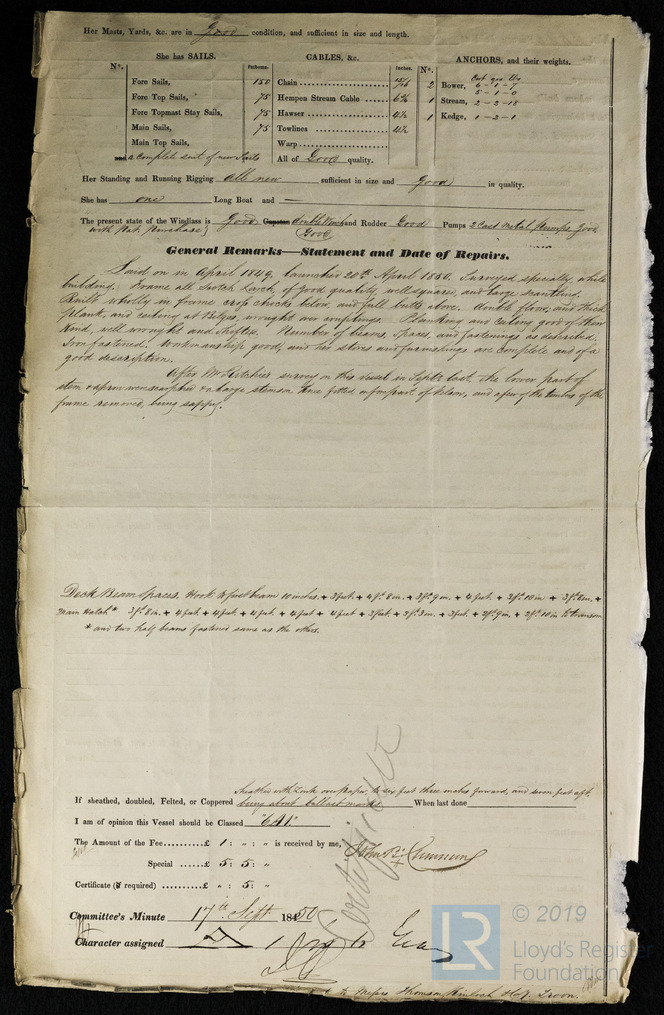 Her Masts, Yards, &c. are in Good condition, and sufficient in size and length.
She has SAILS.
CABLES, &c.
ANCHORS, and their weights.
Nº.
Fathoms.
Inches.
Nº.
Cwt qrs lbs
Fore Sails,
150 Chain 15/16
2 Bower, 6 - 1 - 7
5 - 1 - 0
Fore Top Sails,
75 Hempen Stream Cable 6½
1 Stream, 2 - 2 - 18
Fore Topmast Stay Sails,
75 Hawser 4½
1 Kedge, 1 - 2 - 1
Main Sails,
75 Towlines 4½
Main Top Sails,
Warp
and a complete suit of new Sails
All of Good quality.
Her Standing and Running Rigging all new sufficient in size and good in quality.
She has one Long Boat and —
The present state of the Windlass is Good Capstan double Winch and Rudder Good Pumps 2 Cast metal Pumps, good
with Pat. purchase;
Good
General Remarks—Statement and Date of Repairs.
Laid on in April 1849, launched 20th April 1850. Surveyed specially while
building. Frame all Scotch Larch of good quality, well squared, and large scantling.
Built wholly in frame crop chocks below, and full butts above. double floor, and thick
plank, and ceiling at Bilges, wrought over
Planking and Ceiling good of their
Kind, well wrought and shifted. Number of beams, spaces, and fastenings as described.
Iron fastened. Workmanship good, and her stores and furnishings are complete and of a
good description.
After Mr survey on this vessel in Sept. last, the lower part of
stem & apron were & a large stemson Knee fitted on forepart of and a few of the timbers of the
frame removed, being sappy.
Deck Beam Spaces. Hook to first beam 10 inches. + 3 feet. + 4 ft. 8 in. + 3 ft. 9 in. + 4 feet. + 2 ft. 10 in + 3 ft. 8 in. +
Main Hatch* 3 ft. 8 in. + 4 feet. + 4 feet. + 4 feet. + 4 feet + 4 feet + 3 feet + 3 ft. 3 in. + 3 feet. + 2 ft. 9 in. + 2 ft. 10 in to transom
* and two half beams fastened same as the others.
Certificate
sheathed with Zink over paper, to six feet three inches forward, and seven feet aft.
If sheathed, doubled, Felted, or Coppered being about ballast marks When last done
I am of opinion this Vessel should be Classed "6A1"
The Amount of the Fee £ 1 : „ : „ is received by me,
Special £ 5 : 5 : „
Certificate (if required) £ „ : 5 : „
Committee's Minute 17th Sept. 1850
Character assigned
to Messrs Thomson Kinloch Troon.
LR
© 2019
Lloyd's Register
Foundation